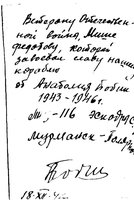 Ветерану Отечествен-
ной войны, Мише
Федотову, который
завоевал славу нашим
кораблю
от Анатолия Бобин
1943-1946г.
-116 эскадрус,
Мурманск-
18-XII-